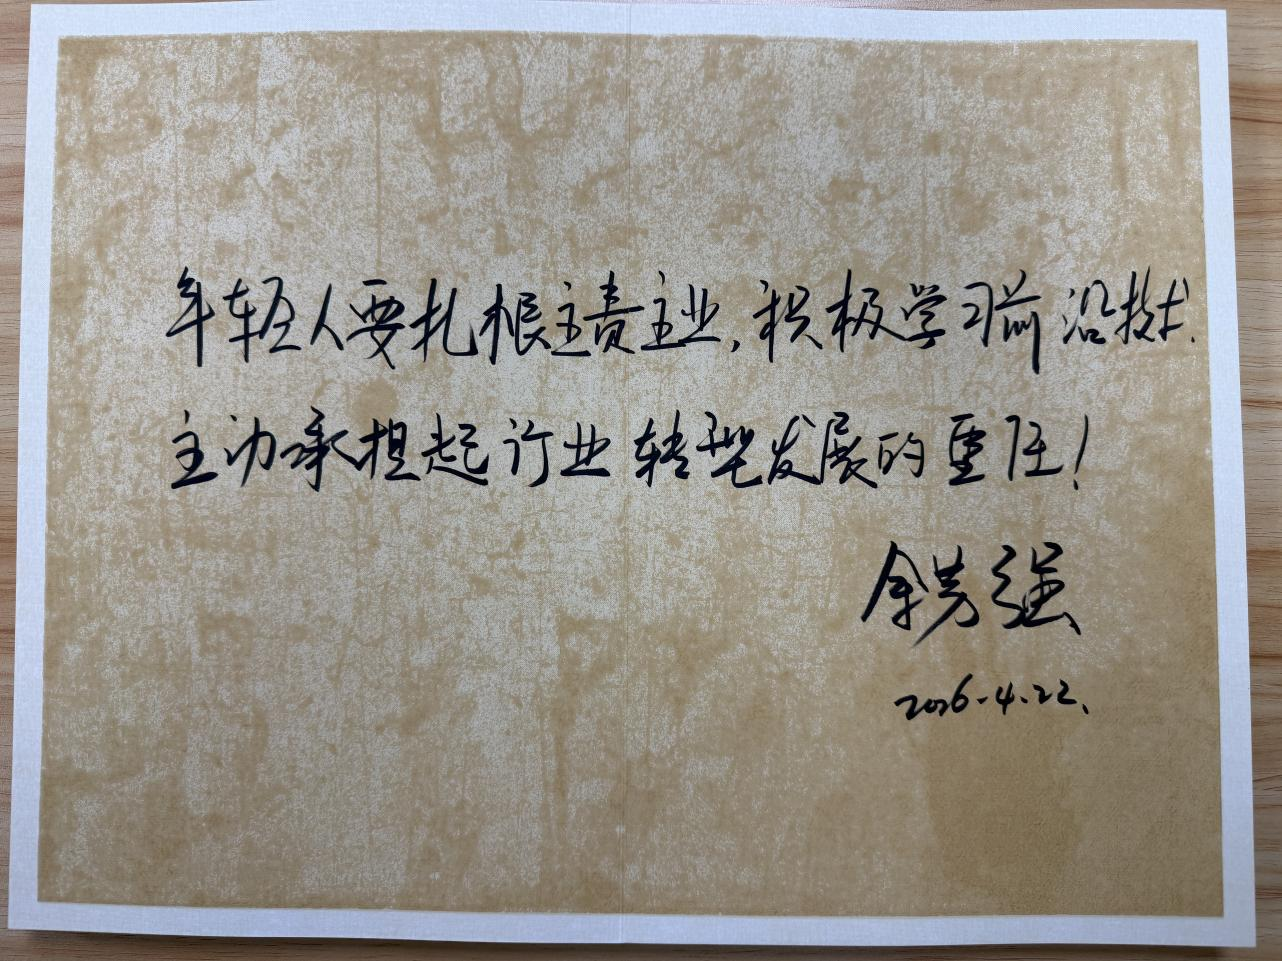 年轻人要扎根主责主业,积极学习前沿技术.
主动承担起行业转型发展的重任!
余芳强
2026.4.22.